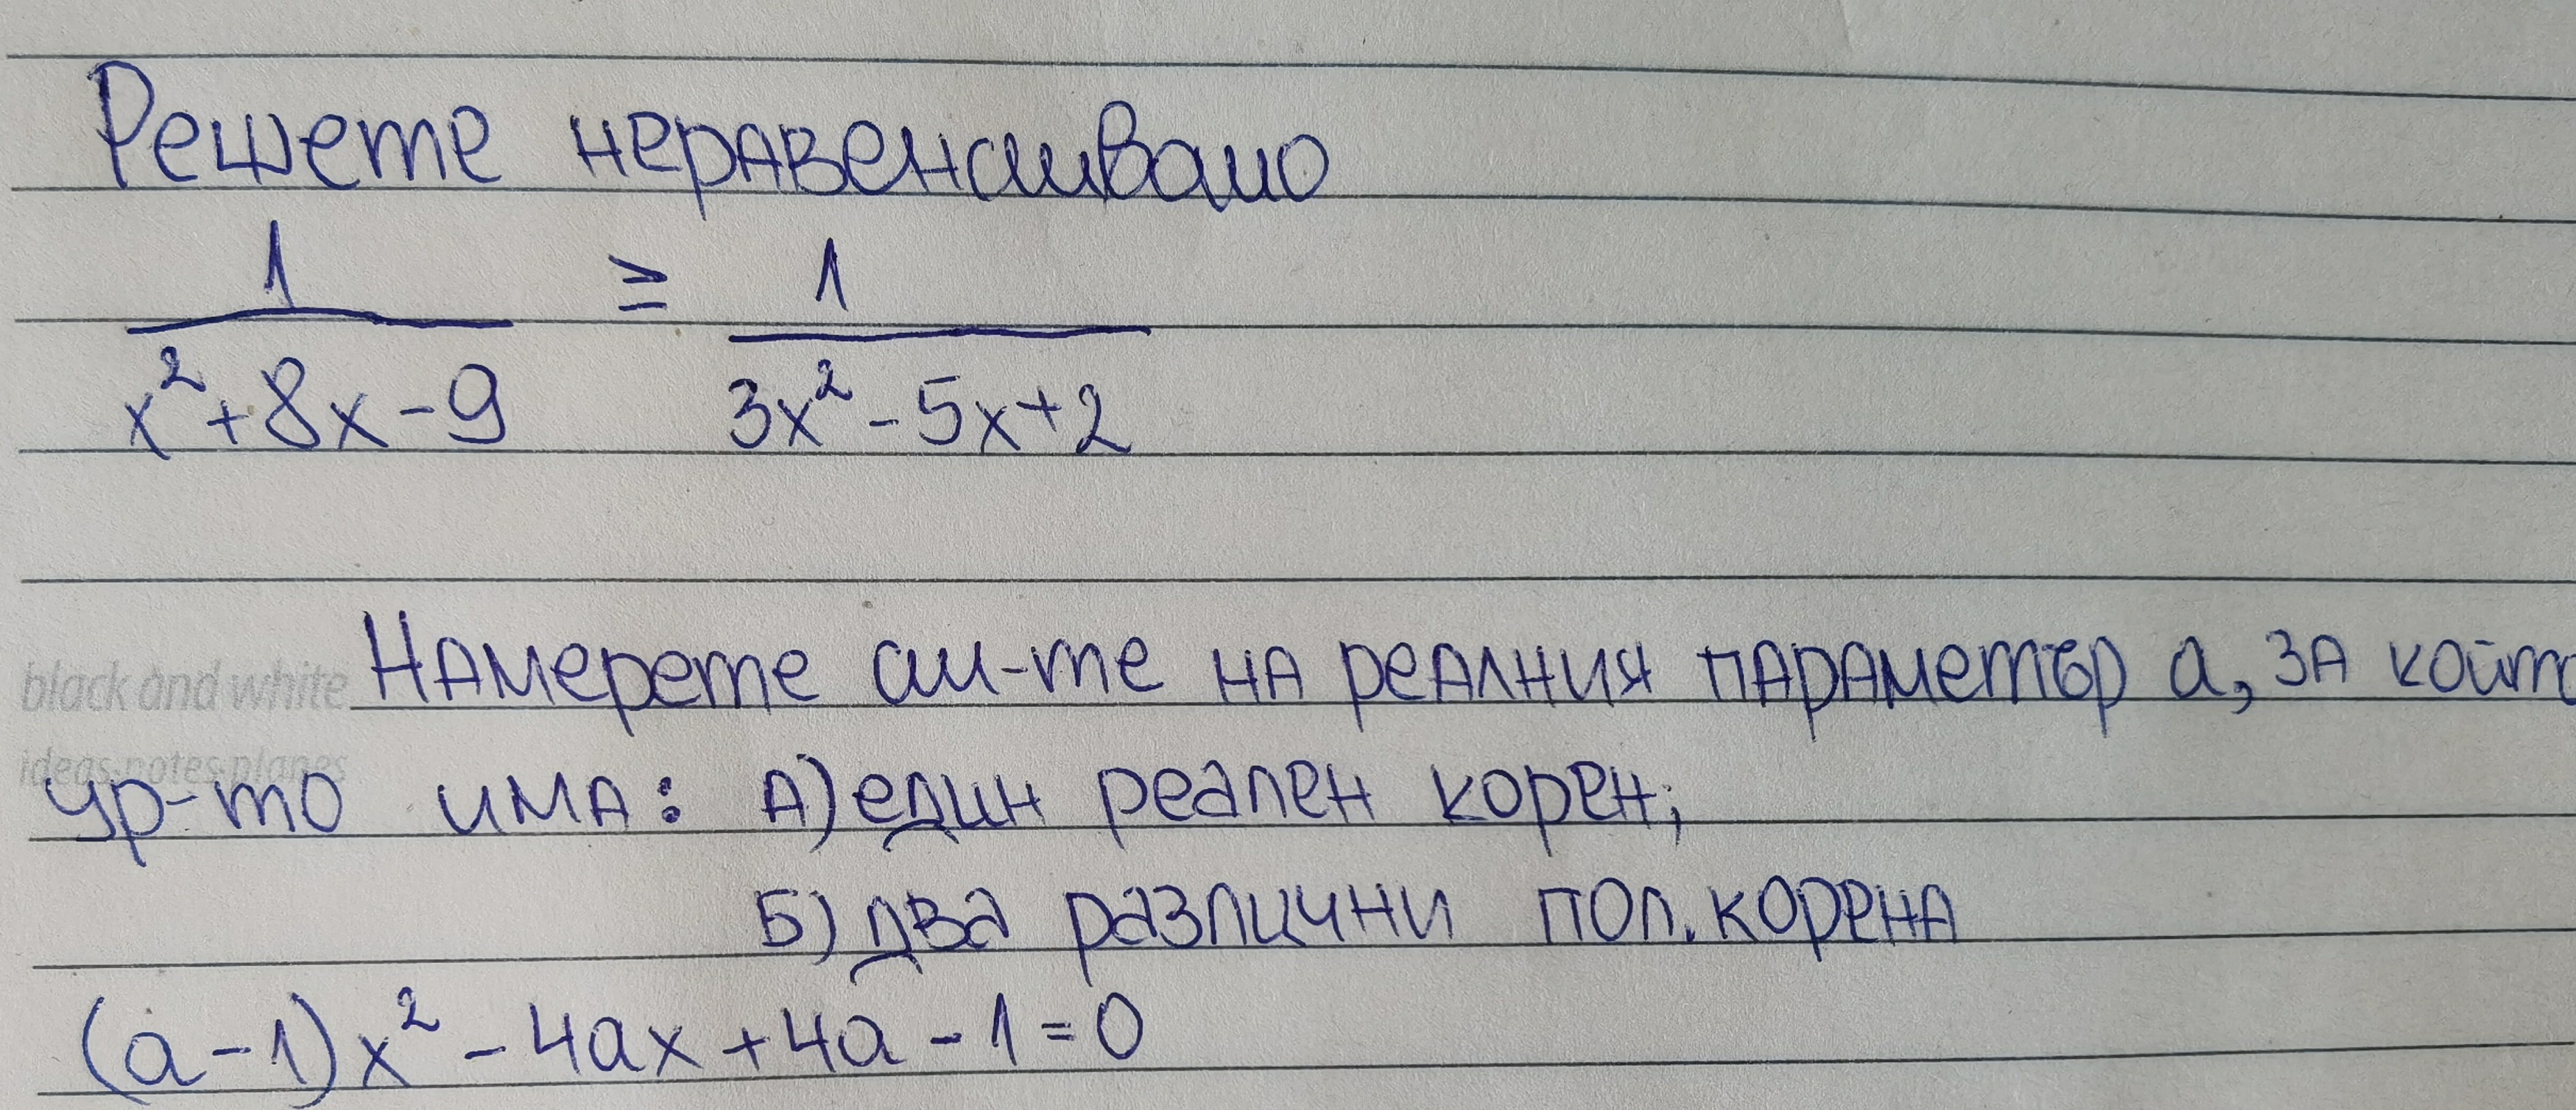 Решете неравенството
1/(x²+8x-9) ≥ 1/(3x²-5x+2)
black and white
Намерете ст-те на реалния параметър a, за койт
ideas notes planes
ур-то има: А) един реален корен;
Б) два различни пол. корена
(a-1)x²-4ax+4a-1=0